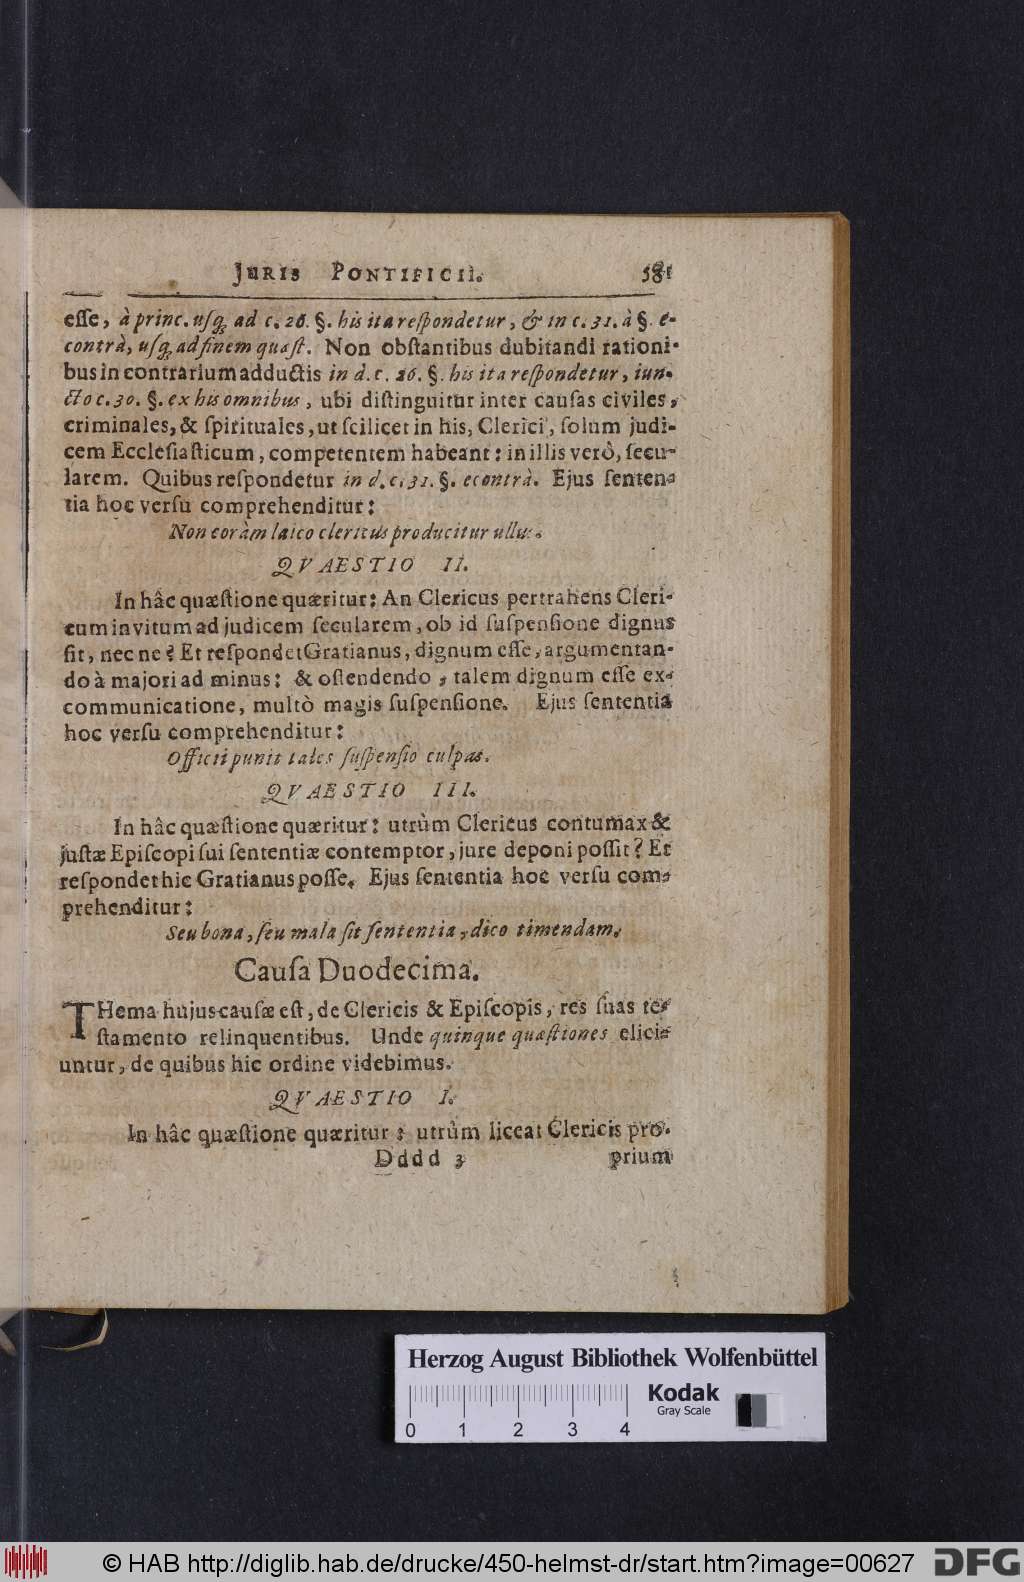 JURIS PONTIFICII. 581
eſſe, à princ. uſq; ad c. 26. §. his ita reſpondetur, & in c. 31. à §. e-
contrà, uſq; ad finem quæſt. Non obſtantibus dubitandi rationi-
bus in contrarium adductis in d. c. 26. §. his ita reſpondetur, iun-
cto c. 30. §. ex his omnibus, ubi diſtinguitur inter cauſas civiles,
criminales, & ſpirituales, ut ſcilicet in his, Clerici, ſolum judi-
cem Eccleſiaſticum, competentem habeant: in illis verò, ſecu-
larem. Quibus reſpondetur in d. c. 31. §. econtrà. Ejus ſenten-
tia hoc verſu comprehenditur:
Non coràm laico clericus producitur ullus.
QVAESTIO II.
In hâc quæſtione quæritur: An Clericus pertrahens Cleri-
cum invitum ad judicem ſecularem, ob id ſuſpenſione dignus
ſit, nec ne? Et reſpondet Gratianus, dignum eſſe, argumentan-
do à majori ad minus: & oſtendendo, talem dignum eſſe ex-
communicatione, multò magis ſuſpenſione. Ejus ſententia
hoc verſu comprehenditur:
Officii punit tales ſuſpenſio culpas.
QVAESTIO III.
In hâc quæſtione quæritur: utrùm Clericus contumax &
juſtæ Epiſcopi ſui ſententiæ contemptor, jure deponi poſſit? Et
reſpondet hic Gratianus poſſe. Ejus ſententia hoc verſu com-
prehenditur:
Seu bona, ſeu mala ſit ſententia, dico timendam.
Cauſa Duodecima.
THema hujus cauſæ eſt, de Clericis & Epiſcopis, res ſuas te-
ſtamento relinquentibus. Unde quinque quæſtiones elici-
untur, de quibus hic ordine videbimus.
QVAESTIO I.
In hâc quæſtione quæritur: utrùm liceat Clericis pro-
Dddd 3 prium
Herzog August Bibliothek Wolfenbüttel
Kodak
Gray Scale
0 1 2 3 4
© HAB http://diglib.hab.de/drucke/450-helmst-dr/start.htm?image=00627
DFG